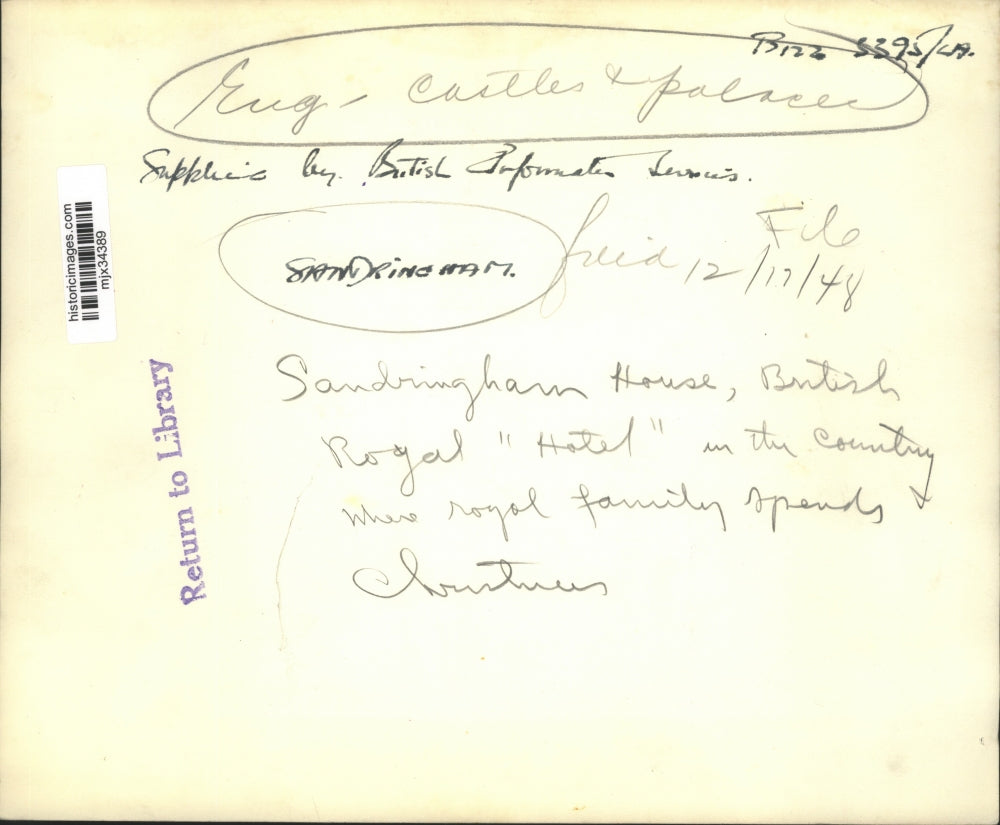 B122 3395/LA.
Eng - Castles & palaces
Supplied by British Information Services.
File
SANDRINGHAM.
12/17/48
historicimages.com
mjx34389
Return to Library
Sandringham House, British
Royal "Hotel" in the country
where royal family spends
Christmas